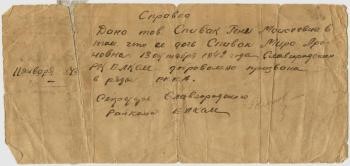 Справка
Дана тов Спивак Гене Моисеевне в
том, что ее дочь Спивак Мира Аро
новна 13 октября 1942 года Славгородским
РК ВЛКСМ добровольно призвана
в ряды РККА.
11 января
Секретарь Славгородского
Райкома ВЛКСМ